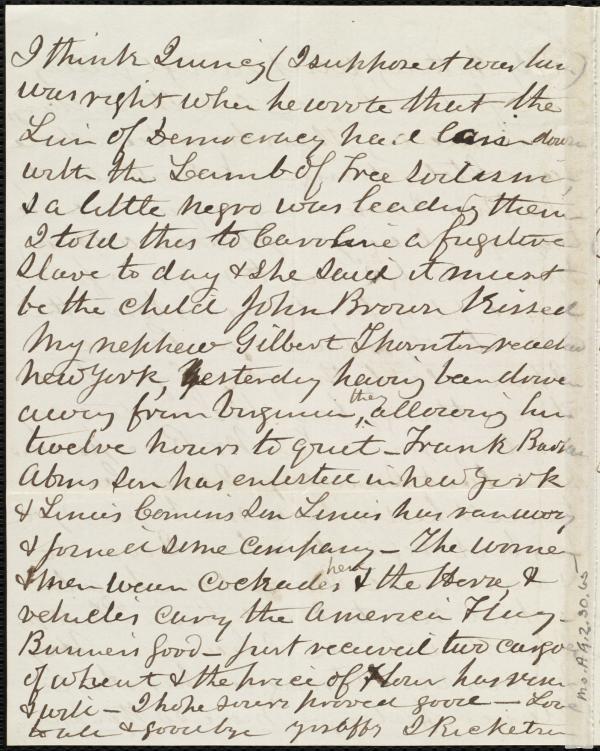 I think Quincy (I suppose it was him)
was right when he wrote that the
Lion of Democracy had lain down
with the Lamb of Free Soilism
& a little negro was leading them
I told this to Caroline a fugitive
slave to day & she said it must
be the child John Brown kissed
My nephew Gilbert Thornton reached
New York, yesterday having been driven
away from Virginia, they allowing him
twelve hours to quit - Frank
Abms son has enlisted in New York
& son has run away
& joined some company - The women
& men wear cockades here & the Horse, &
vehicles carry the American Flag -
Business good - just received two cargo
of wheat & the price of flour has risen
& will - I hope yours proved good -
to all & goodbye yrs affy J Ricketson
Ms. A.9.2.30.65